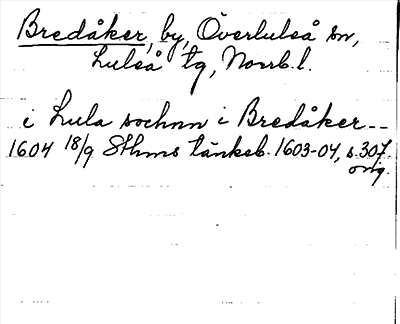 Bredåker, by, Överluleå sn,
Luleå tg, Norrb. l.
i Lula sochnn i Bredåker--
1604 18/9 Sthms tänkeb. 1603-04, s. 307
orig.